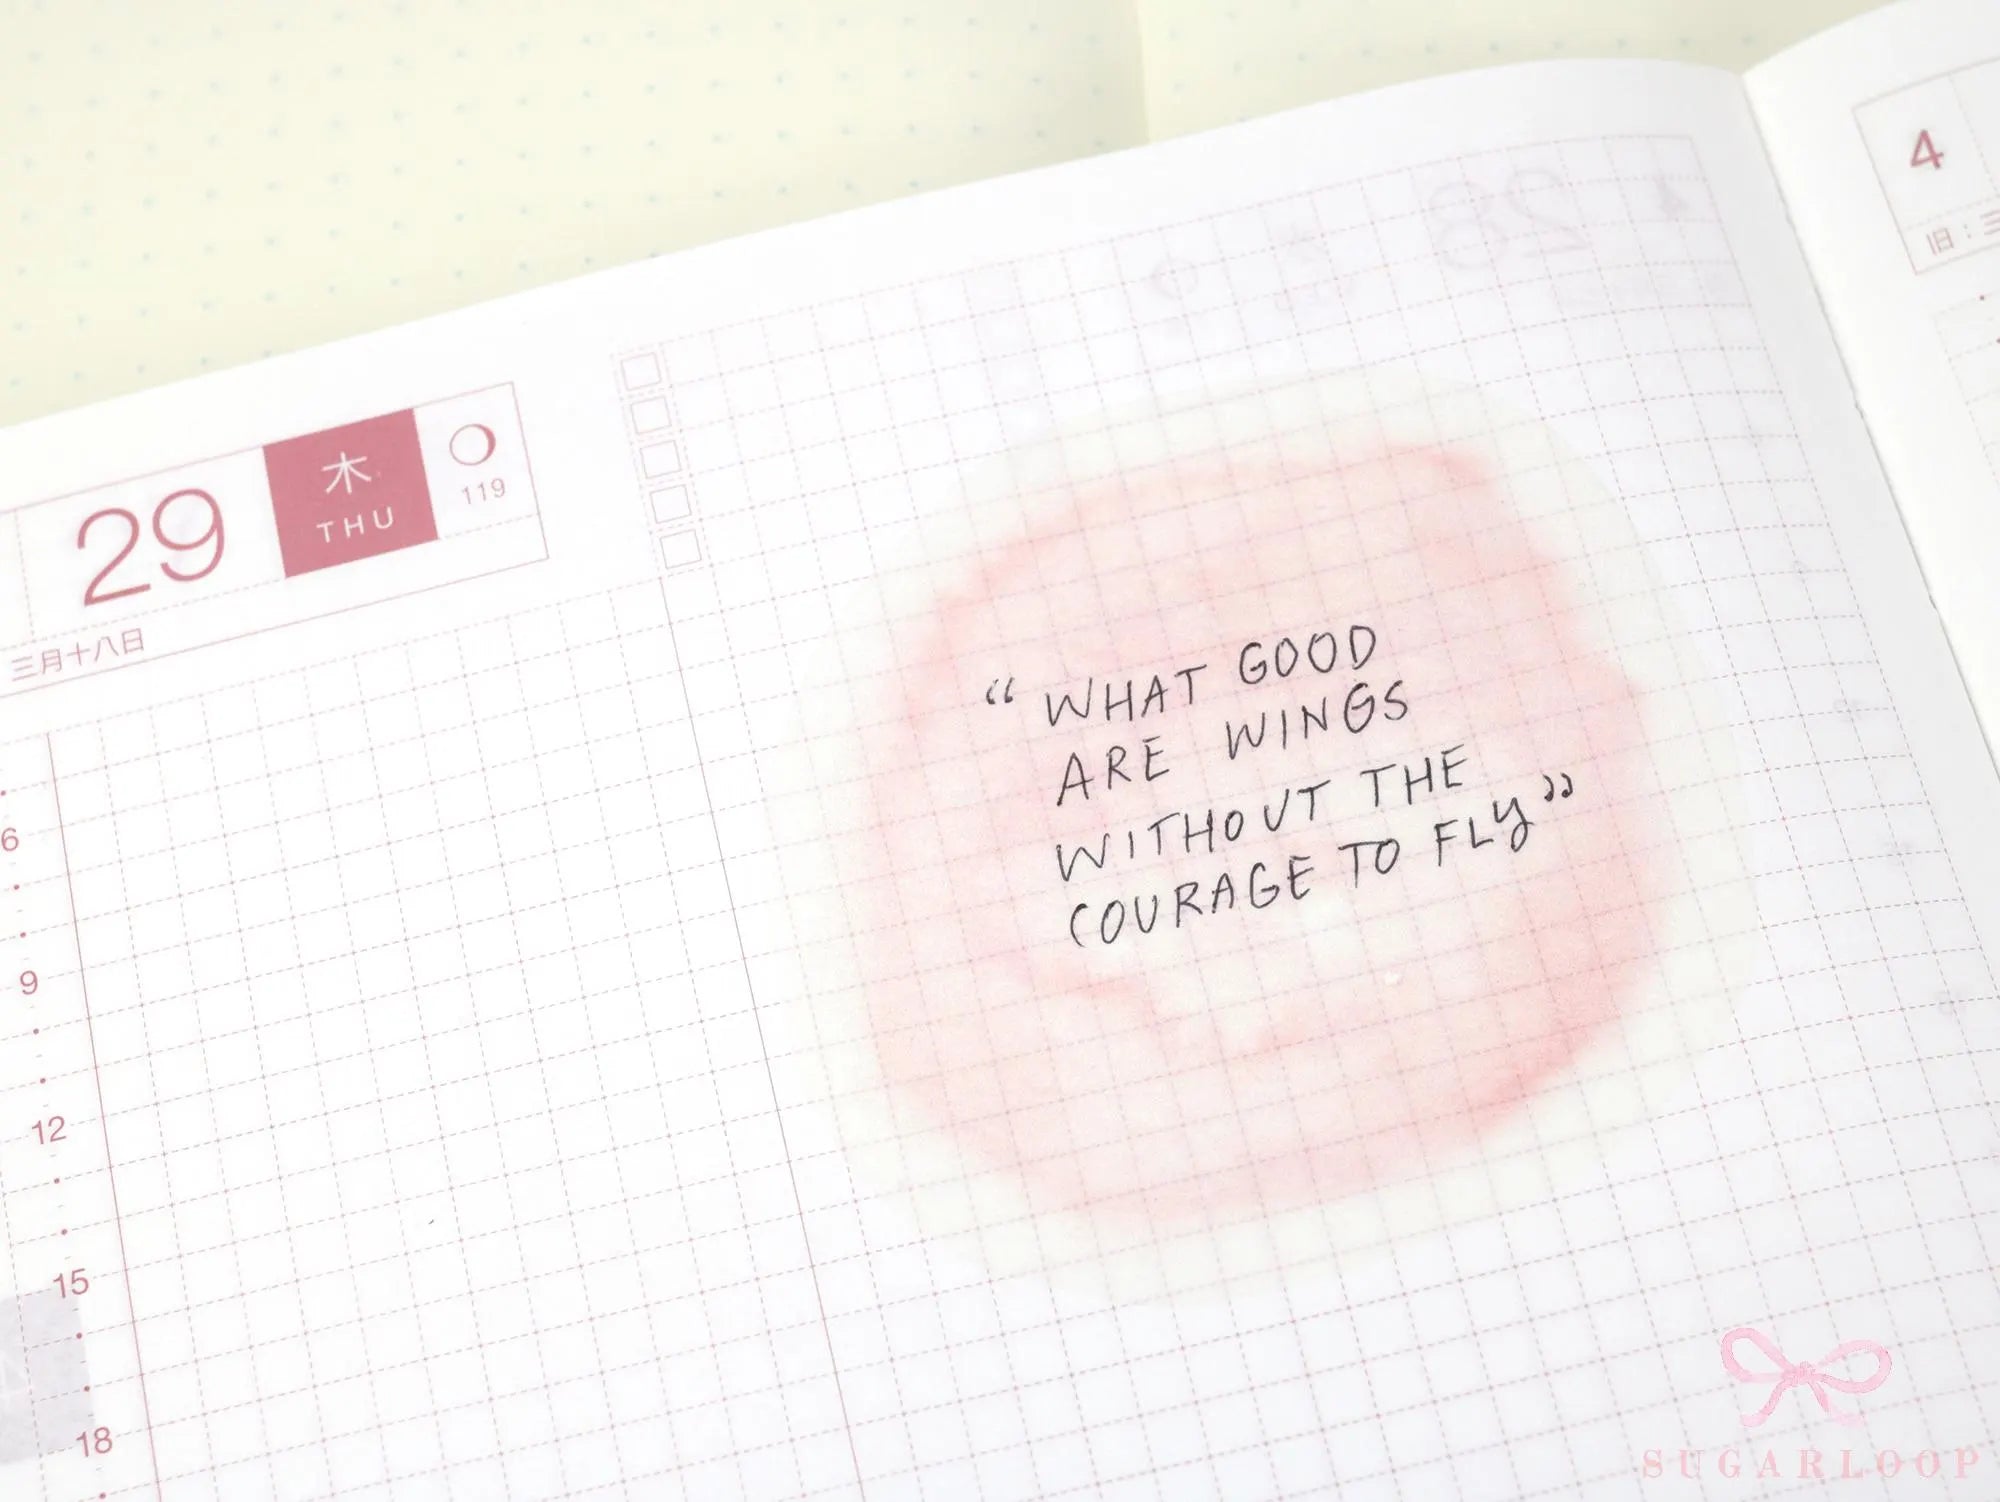 29
木
THU
119
三月十八日
6
9
12
15
18
“ WHAT GOOD
ARE WINGS
WITHOUT THE
COURAGE TO FLY ”
28
4
旧:三
SUGARLOOP